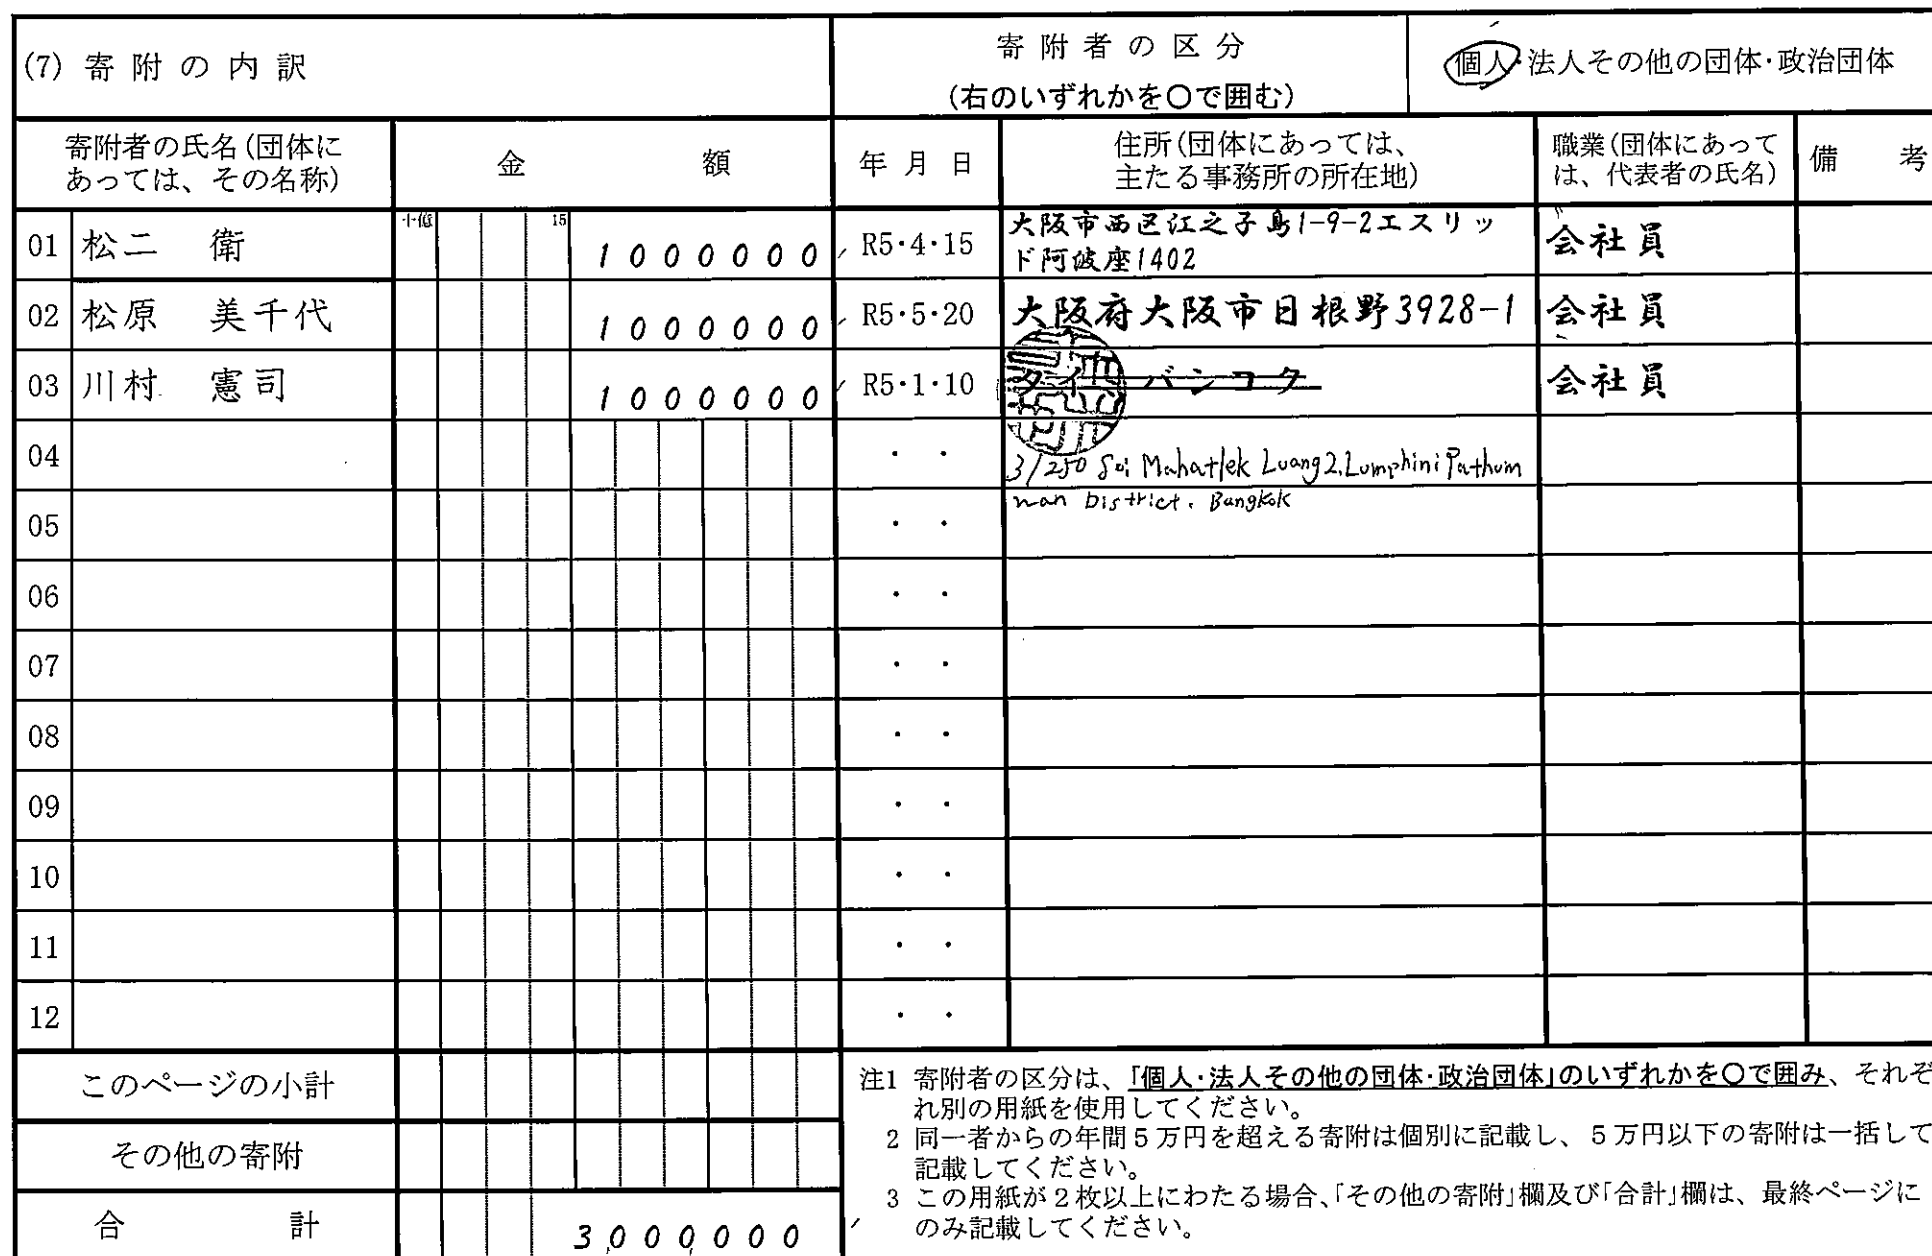 (7) 寄附の内訳
寄附者の区分
(右のいずれかを〇で囲む)
個人・法人その他の団体・政治団体
寄附者の氏名(団体に
あっては、その名称)
金額
年月日
住所(団体にあっては、
主たる事務所の所在地)
職業(団体にあって
は、代表者の氏名)
備考
十億 15
01 松二 衛 1000000 R5・4・15 大阪市西区江之子島1-9-2エスリッ
ド阿波座1402 会社員
02 松原 美千代 1000000 R5・5・20 大阪府大阪市日根野3928-1 会社員
03 川村 憲司 1000000 R5・1・10 タイ バンコク 会社員
04 ・ ・ 3/250 Soi Mahatlek Luang2,Lumphini Pathum
05 ・ ・ wan District. Bangkok
06 ・ ・
07 ・ ・
08 ・ ・
09 ・ ・
10 ・ ・
11 ・ ・
12 ・ ・
このページの小計
その他の寄附
合計 3,000,000
注1 寄附者の区分は、「個人・法人その他の団体・政治団体」のいずれかを〇で囲み、それぞ
れ別の用紙を使用してください。
2 同一者からの年間5万円を超える寄附は個別に記載し、5万円以下の寄附は一括して
記載してください。
3 この用紙が2枚以上にわたる場合、「その他の寄附」欄及び「合計」欄は、最終ページに
のみ記載してください。